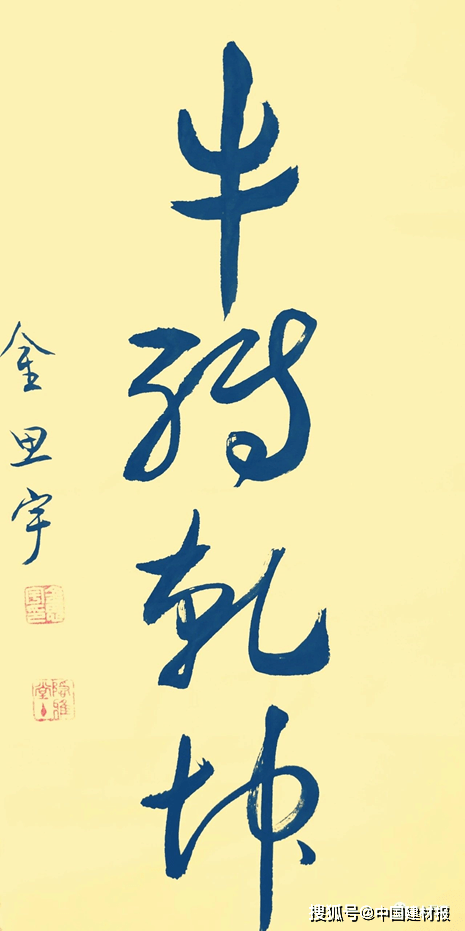 牛转乾坤
金思宇
搜狐号@中国建材报